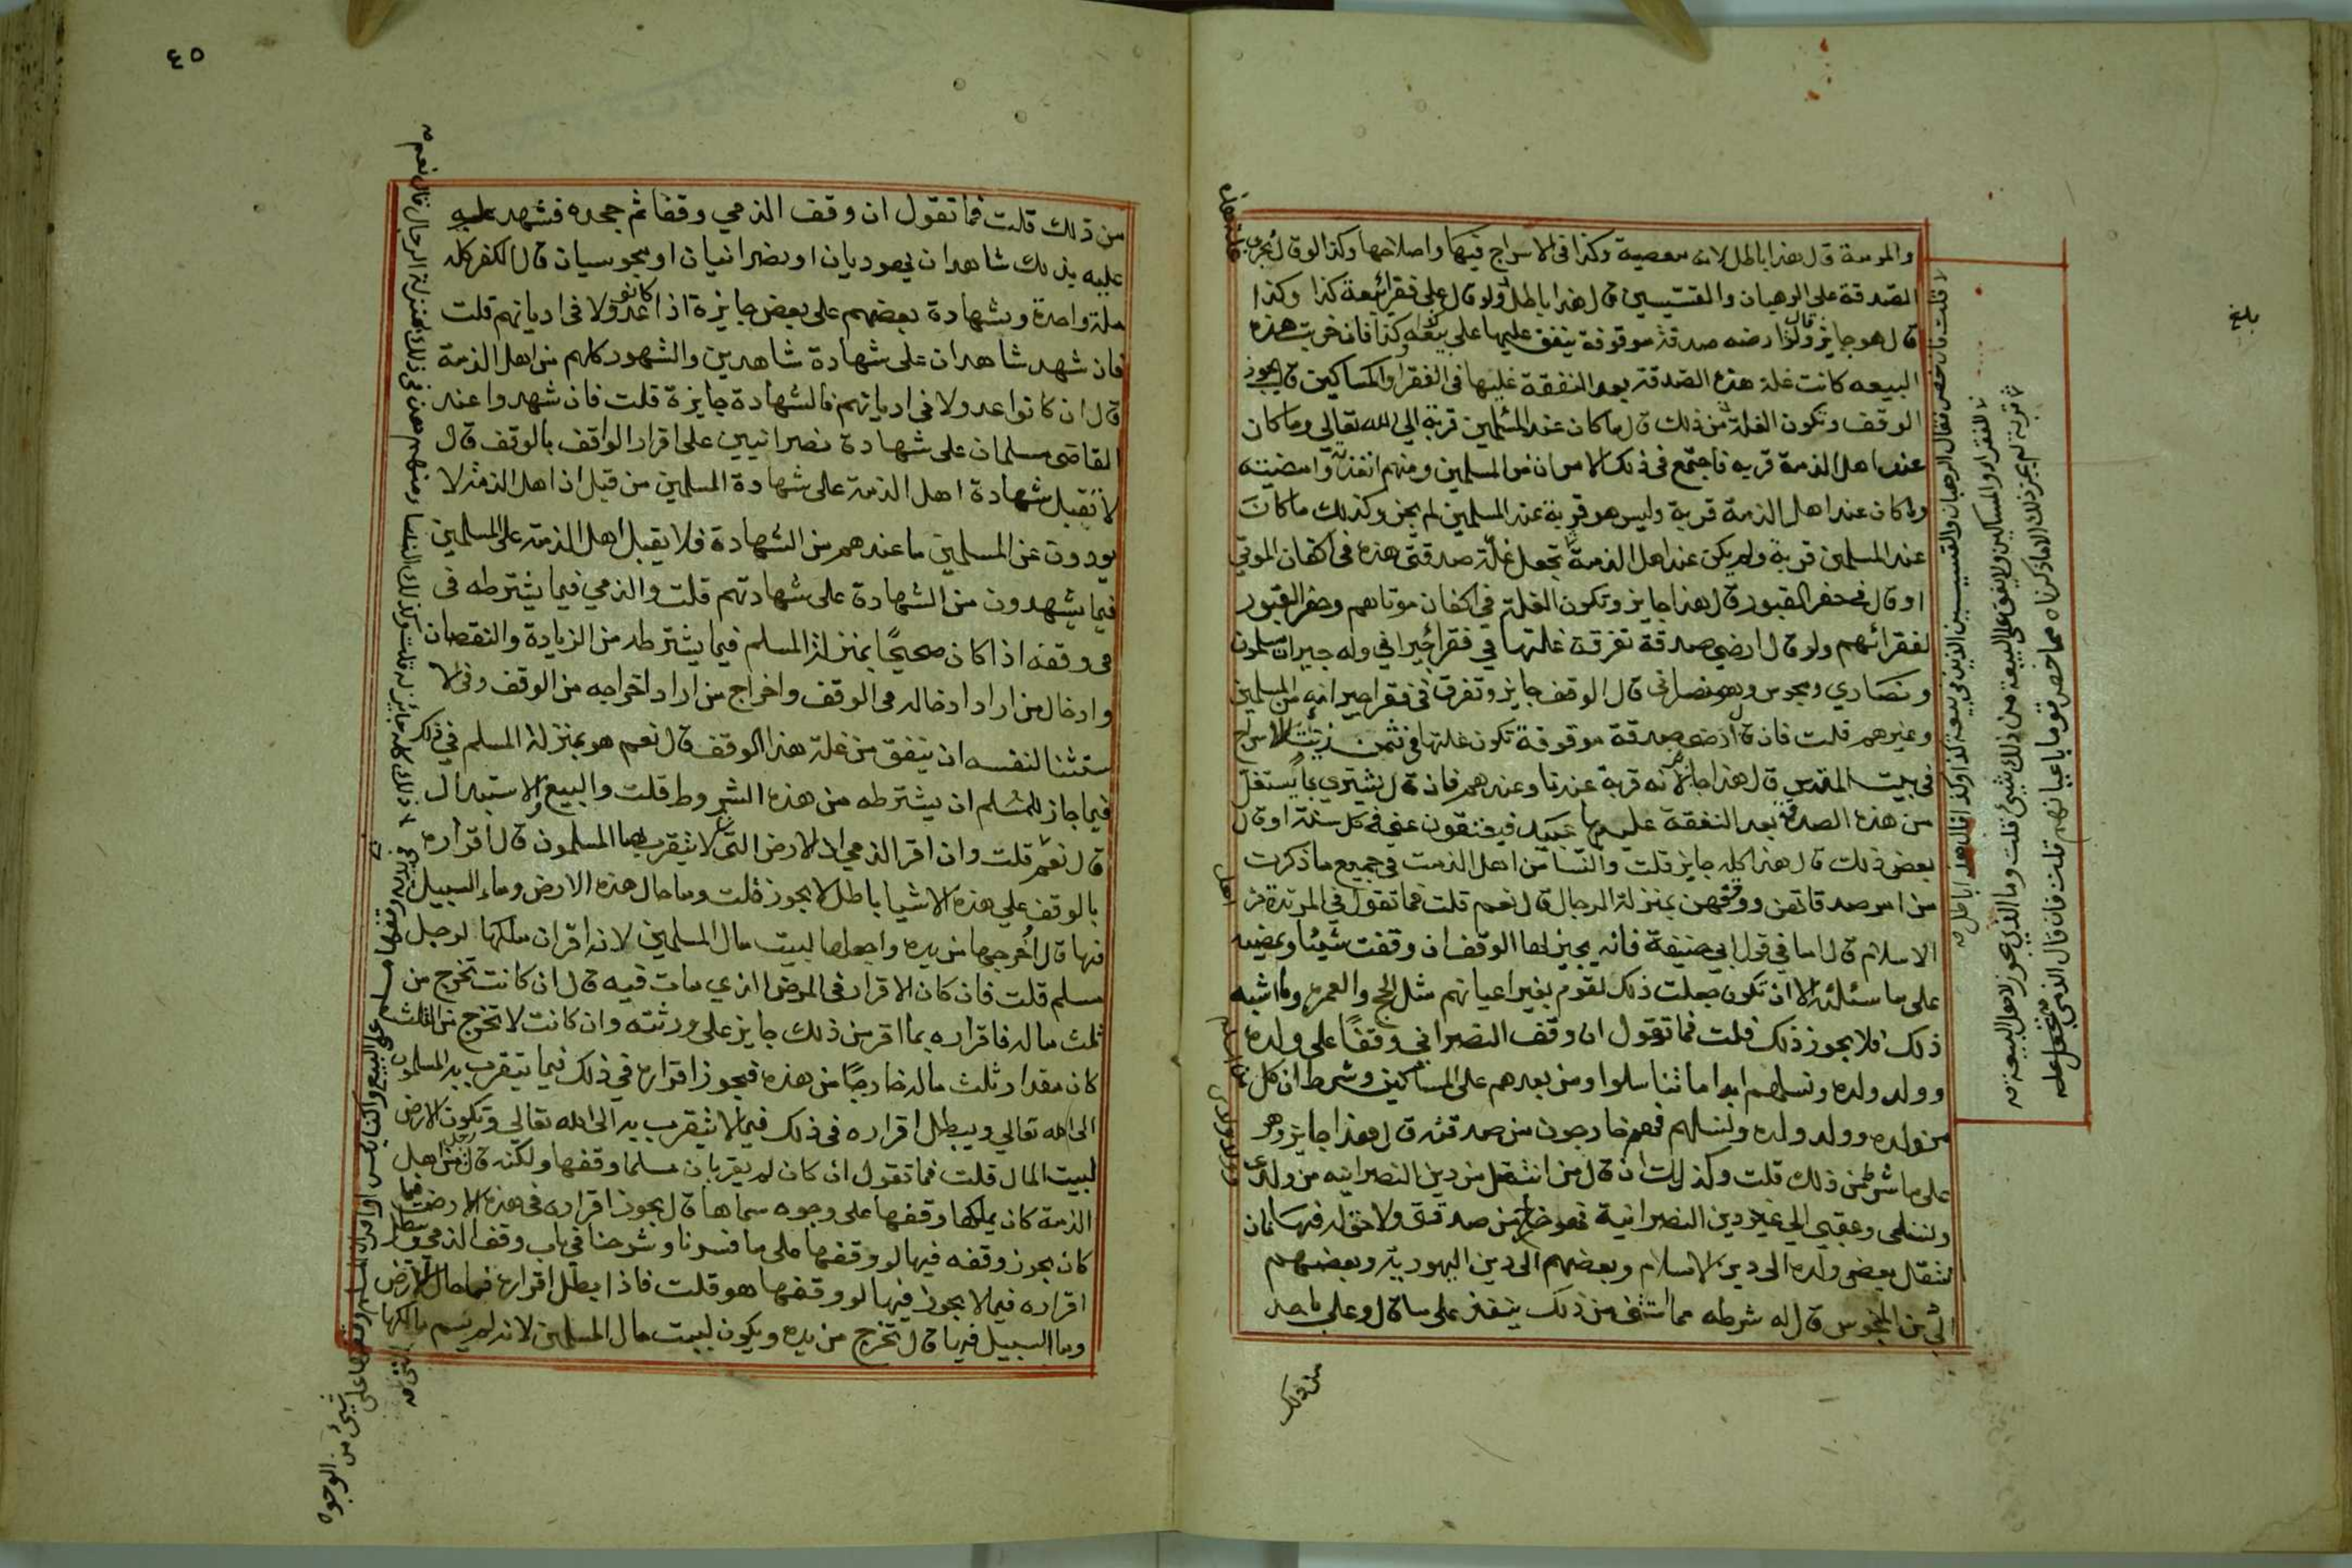 والمرمة قال هذا باطل لانه معصية وكذا في الاسراج فيها واصلاحها وكذا لو قال تجري
الصدقة على الرهبان والقسيسين قال هذا باطل ولو قال على فقراء بيعة كذا وكذا
قال هو جايز ولو قال ارضه صدقة موقوفة ينفق عليها على بيعة كذا وكذا فان خربت هذه
البيعه كانت غلة هذه الصدقة بعد النفقة عليها في الفقرا والمساكين قال يجوز
الوقف وتكون الغلة من ذلك قال ما كان عند المسلمين قربة الى الله تعالى وما كان
عند اهل الذمة قربه فاجتمع في ذلك الامران من المسلمين ومنهم انفذته وامضيته
وما كان عند اهل الذمة قربة وليس هو قربة عند المسلمين لم يجز وكذلك ما كان
عند المسلمين قربة ولم يكن عند اهل الذمة تجعل غلة صدقتي هذه في اكفان الموتى
او قال في حفر القبور قال هذا جايز وتكون الغلة في اكفان موتاهم وحفر القبور
لفقرائهم ولو قال ارضي صدقة تفرقة غلتها في فقراء جيراني وله جيران مسلمون
ونصاري ومجوس وهو نصراني قال الوقف جايز وتفرق في فقرا جيرانه من المسلمين
وغيرهم قلت فان قال ارضي صدقة موقوفة تكون غلتها في ثمن زيت لاسراج
في بيت المقدس قال هذا جايز لانه قربة عندنا وعندهم فان قال يشتري بما يستغل
من هذه الصدقة بعد النفقة عليها عبيد فيعتقون عني في كل سنة او قال
بعض ذلك قال هذا كله جايز قلت والنسا من اهل الذمة في جميع ما ذكرت
من امر صدقاتهن ووقفهن بمنزلة الرجال قال نعم قلت فما تقول في المرتدة من
الاسلام قال اما في قول ابي حنيفة فانه يجيز لها الوقف ان وقفت شيئا وتمضيه
على ما سئلته الا ان تكون جعلت ذلك لقوم بغير اعيانهم مثل الحج والعمرة وما اشبه
ذلك فلا يجوز ذلك قلت فما تقول ان وقف النصراني وقفا على ولده
وولد ولده ونسلهم ابدا ما تناسلوا ومن بعدهم على المساكين وشرط ان كل
من ولده وولد ولده ونسلهم فهو خارجون من صدقته قال هذا جايز وهو
على ما شرط من ذلك قلت وكذلك ان قال من انتقل من دين النصرانيه من ولدي
ونسلي وعقبي الى غير دين النصرانية فهو خارج من صدقتي ولا حق له فيها فان
انتقل بعض ولده الى دين الاسلام وبعضهم الى دين اليهودية وبعضهم
الى دين المجوس قال له شرطه مما استثنى من ذلك ينفذ على ما قال وعلى ما حد
من ذلك
بلغ
لا قلت فان خص فقال الرهبان والقسيسين الذين في بيعة كذا وكذا قال هذا باطل صح
لا للفقراء والمساكين ولا ينفق على البيعة من ذلك شيئ قلت وما الذي يجوز لاهل البيعة صح
قربة لم يجز ذلك الا ما ذكرناه مما خص قوما باعيانهم قلت فان قال الذمي تجعل غلة صح
٤٥
من ذلك قلت فما تقول ان وقف الذمي وقفا ثم جحده فشهد عليه
عليه بذلك شاهدان يهوديان او نصرانيان او مجوسيان قال الكفر كله
ملة واحدة وشهادة بعضهم على بعض جايزة اذا كانو عدولا في اديانهم قلت
فان شهد شاهدان على شهادة شاهدين والشهود كلهم من اهل الذمة
قال ان كانوا عدولا في اديانهم فالشهادة جايزة قلت فان شهدوا عند
القاضي مسلمان على شهادة نصرانيين على اقرار الواقف بالوقف قال
لا تقبل شهادة اهل الذمة على شهادة المسلمين من قبل ان اهل الذمة لا
يودون عن المسلمين ما عندهم من الشهادة فلا يقبل اهل الذمة على المسلمين
فيما يشهدون من الشهادة على شهادتهم قلت والذمي فيما يشترطه في
في وقفه اذا كان صحيحا بمنزلة المسلم فيما يشترطه من الزيادة والنقصان
وادخال من اراد ادخاله في الوقف واخراج من اراد اخراجه من الوقف وفي الا
ستثنا لنفسه ان ينفق من غلة هذا الوقف قال نعم هو بمنزلة المسلم في ذلك
فيما جاز للمسلم ان يشترطه من هذه الشروط قلت والبيع والاستبدال
قال نعم قلت وان اقر الذمي ان الارض التي لا يتقرب بها المسلمون قال اقراره
بالوقف على هذه الاشيا باطل لا يجوز قلت وما حال هذه الارض وما السبيل
فيها قال اخرجها من يده واجعلها لبيت مال المسلمين لانه اقر ان ملكها لرجل
مسلم قلت فان كان الاقرار في المرض الذي مات فيه قال ان كانت تخرج من
ثلث ماله فاقراره بما اقر من ذلك جايز على ورثته وان كانت لا تخرج من الثلث
كان مقدار ثلث ماله خارجا من هذه فيجوز اقراره في ذلك فيما يتقرب به المسلمون
الى الله تعالي ويبطل اقراره في ذلك فيما لا يتقرب به الى الله تعالي وتكون الارض
لبيت المال قلت فما تقول ان كان لم يقر بان مسلما وقفها ولكنه قال رجل من اهل
الذمة كان يملكها وقفها على وجوه سماها قال يجوز اقراره في هذه الارض فيما
كان يجوز وقفه فيها لو وقفها على ما فسرنا وشرحنا في باب وقف الذمي ويبطل
اقراره فيما لا يجوز فيها لو وقفها هو قلت فاذا بطل اقراره فما حال الارض
وما السبيل فيها قال تخرج من يده ويكون لبيت مال المسلمين لانه لم يسم مالكها
شيئ من الوجوه